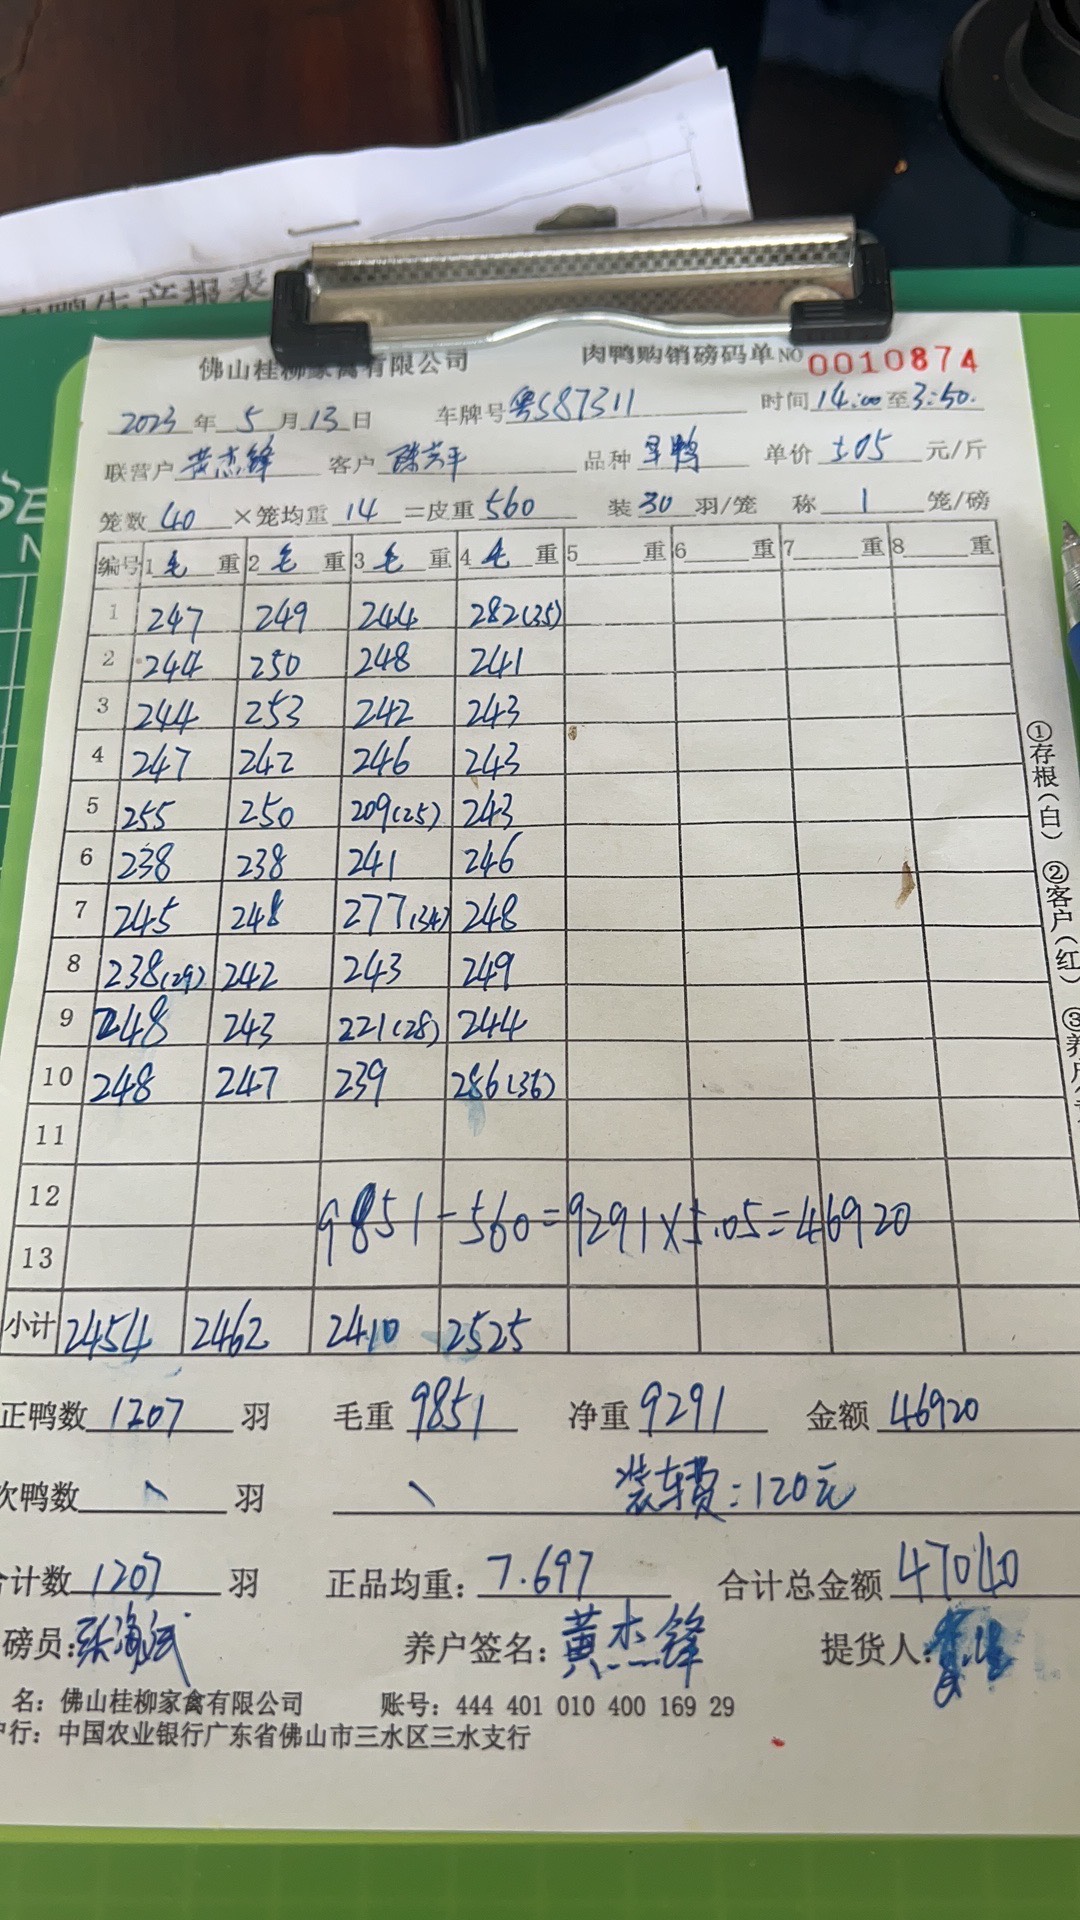 肉鸭生产报表
佛山桂柳家禽有限公司 肉鸭购销磅码单 NO 0010874
2023年5月13日 车牌号 粤S87311 时间 14:00 至 3:50.
联营户 黄杰锋 客户 品种 单价 5.05 元/斤
笼数 40 ×笼均重 14 =皮重 560 装 30 羽/笼 称 1 笼/磅
编号 1 毛 重 2 毛 重 3 毛 重 4 毛 重 5 重 6 重 7 重 8 重
1 247 249 244 282(35)
2 244 250 248 241
3 244 253 242 243
4 247 242 246 243
5 255 250 209(25) 243
6 238 238 241 246
7 245 248 277(34) 248
8 238(29) 242 243 249
9 248 243 221(28) 244
10 248 247 239 286(36)
11
12
9851-560=9291×5.05=46920
13
小计 2454 2462 2410 2525
正鸭数 1207 羽 毛重 9851 净重 9291 金额 46920
次鸭数 \ 羽 \ 装车费:120元
合计数 1207 羽 正品均重: 7.697 合计总金额 47040
磅员: 养户签名: 黄杰锋 提货人:
名: 佛山桂柳家禽有限公司 账号: 444 401 010 400 169 29
户行: 中国农业银行广东省佛山市三水区三水支行
①存根(白) ②客户(红) ③养户
SE
N